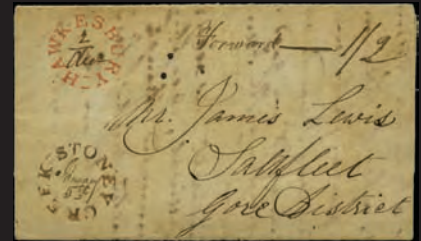 HAWKESBURY
Forward 1/2
Mr. James Lewis
Saltfleet
Gore District
STONEY CREEK